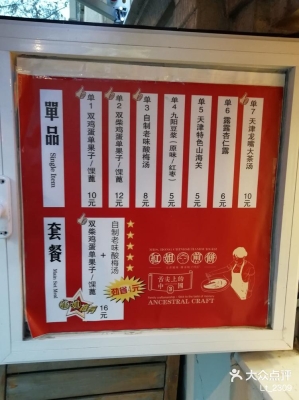 單品
Single Item
单1 双鸡蛋单果子/馃蓖 10元
单2 双柴鸡蛋单果子/馃蓖 12元
单3 自制老味酸梅汤 8元
单4 九阳豆浆(原味/红枣) 5元
单5 天津特色山海关 5元
单6 露露杏仁露 6元
单7 天津龙嘴大茶汤 10元
套餐
双柴鸡蛋单果子/馃蓖
+
自制老味酸梅汤
16元
紅姐煎餅
舌尖上的中國
ANCESTRAL CRAFT
大众点评